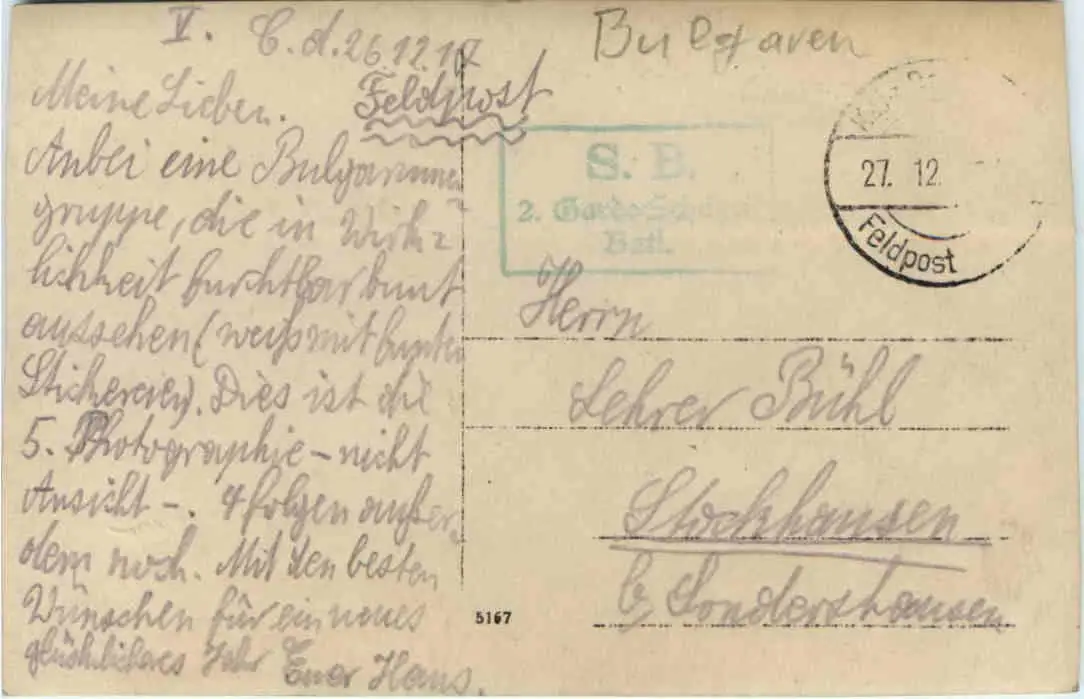 V. C. d. 26.12.17
Meine Lieben.
Anbei eine Bulgarinnen
gruppe, die in Wirk-
lichkeit furchtbar bunt
aussehen (weiß mit bunten
Stickereien). Dies ist die
5. Photographie – nicht
Ansicht –. 4 folgen außer
dem noch. Mit den besten
Wünschen für ein neues
glückliches Jahr Euer Hans.
Bulgaren
Feldpost
S. B.
2. Garde
Batl.
27. 12.
Feldpost
Herrn
Lehrer Bühl
Stockhausen
b. Sondershausen
5167